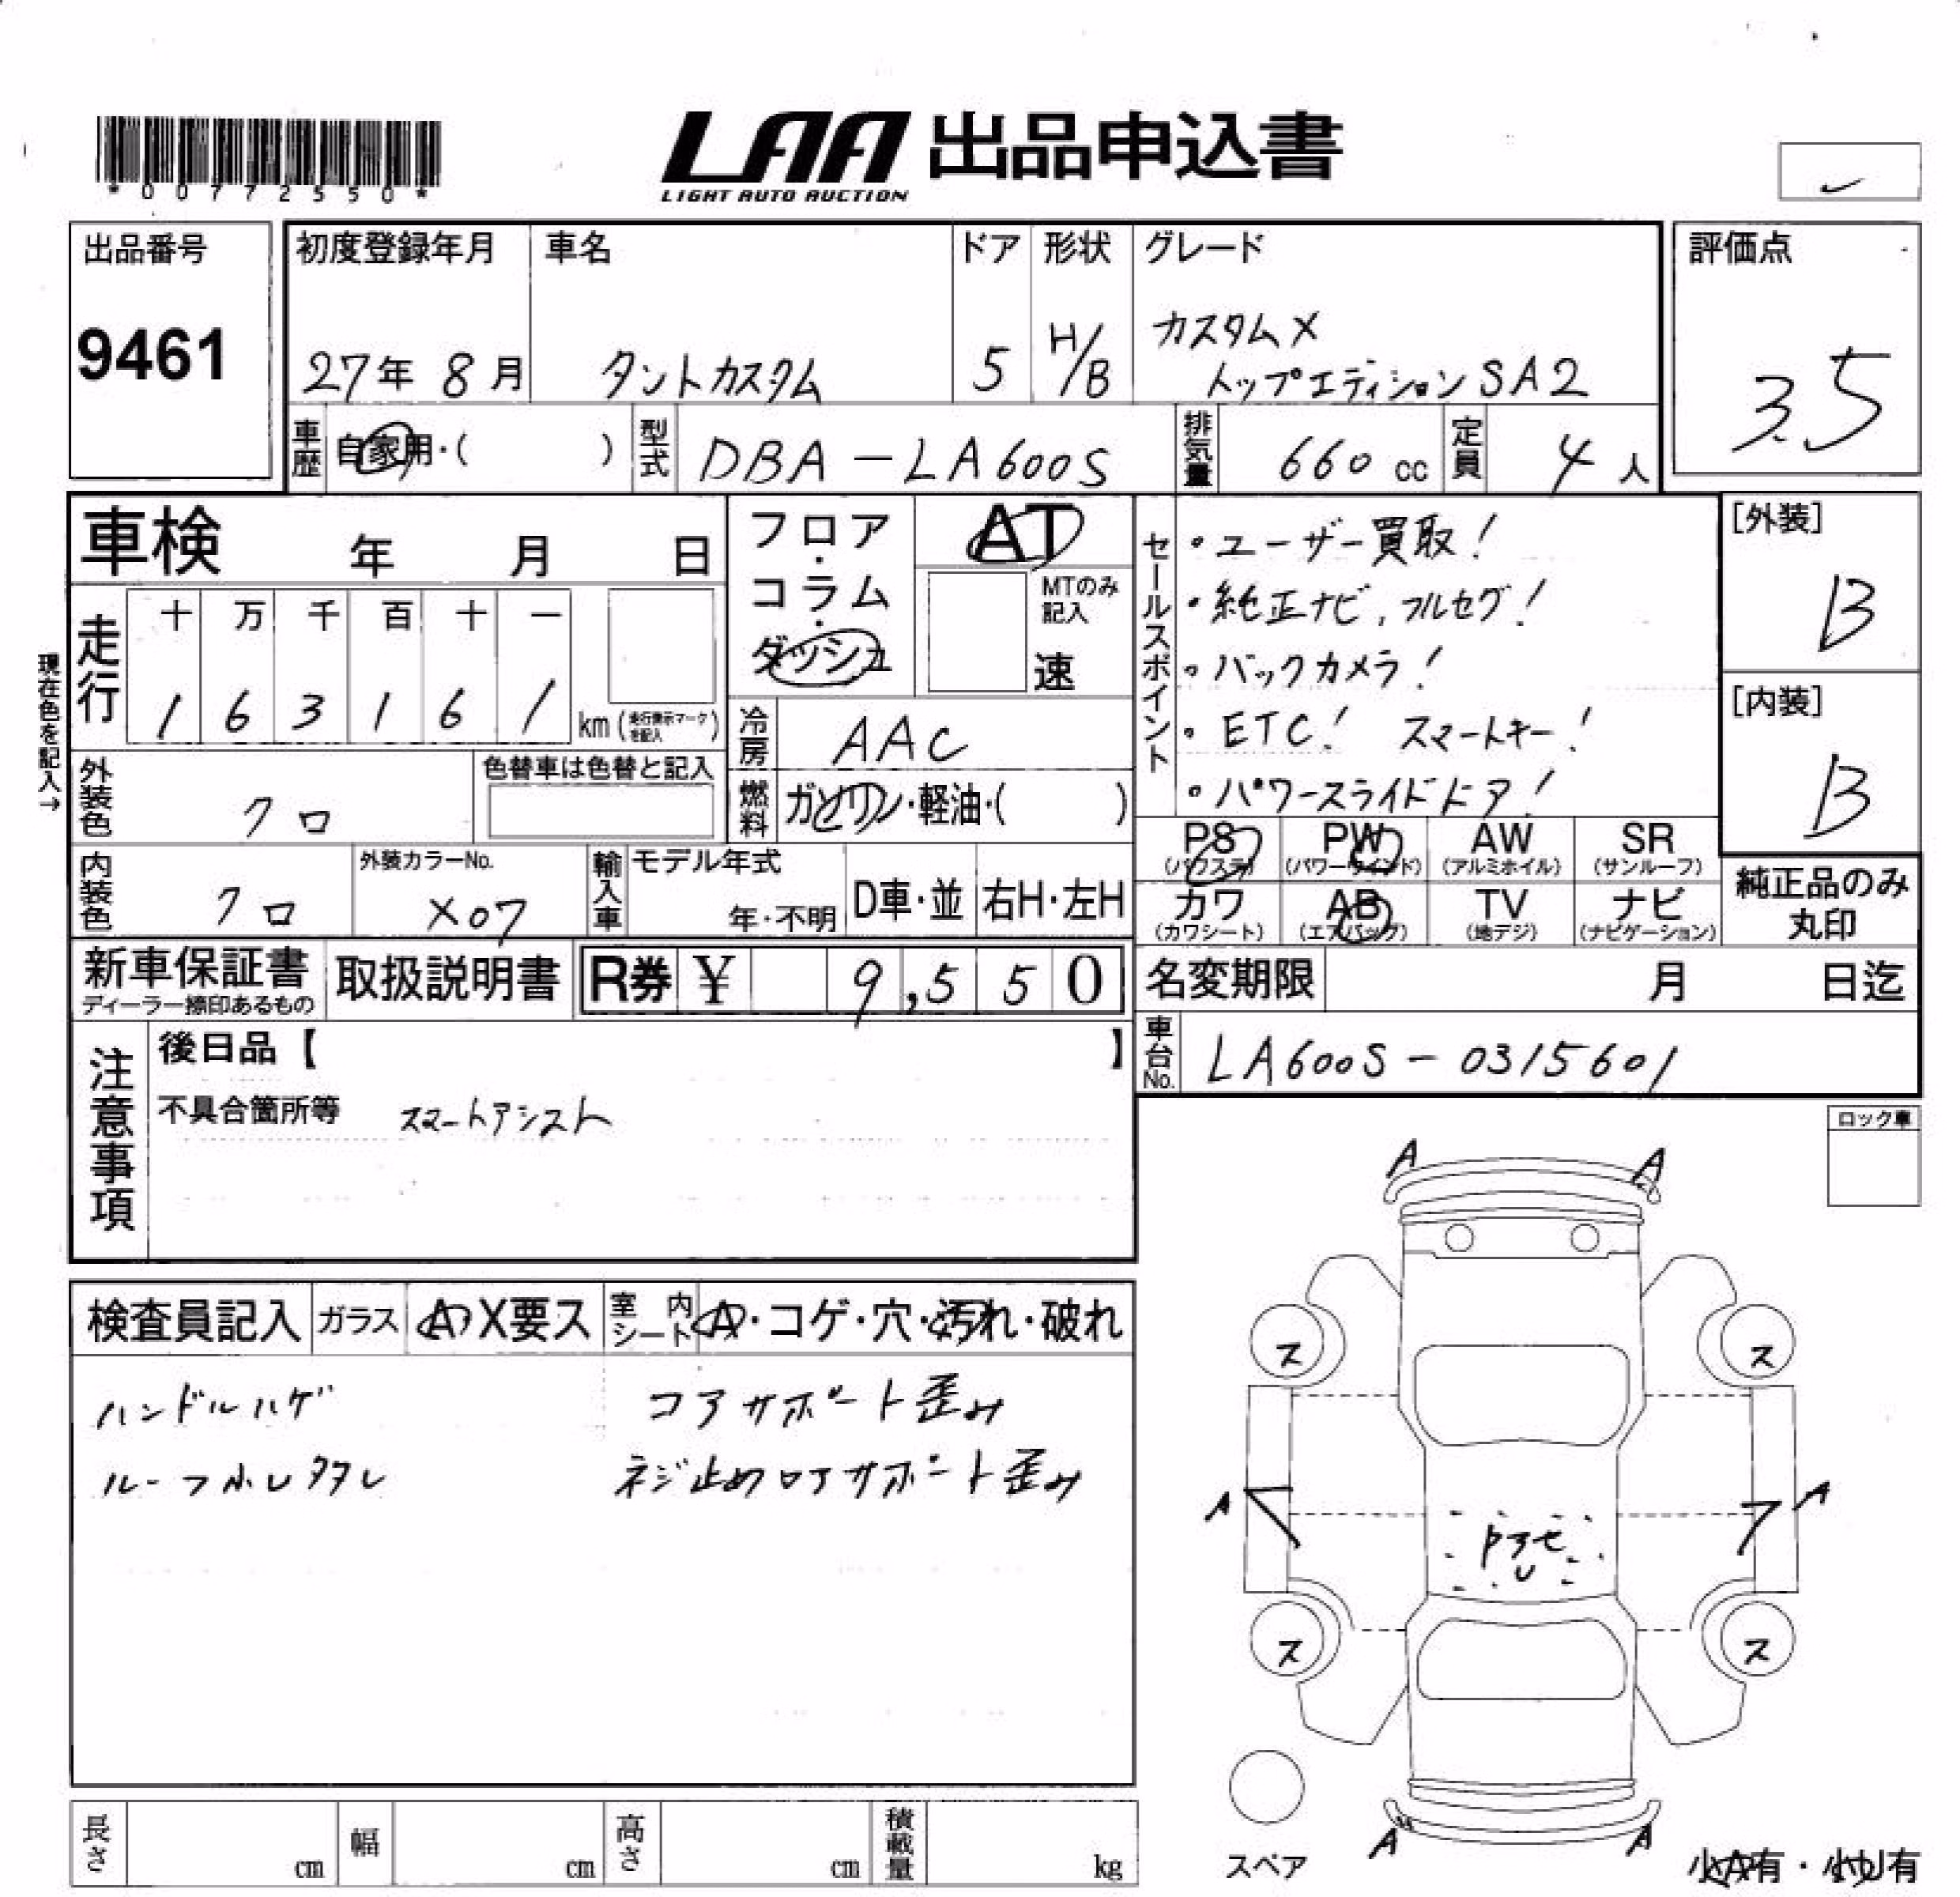 *00772550*
LAA 出品申込書
LIGHT AUTO AUCTION
出品番号
9461
初度登録年月
27年 8月
車名
タントカスタム
ドア
5
形状
H/B
グレード
カスタムX
トップエディションSA2
評価点
3.5
車歴 自家用・( )
型式 DBA-LA600S
排気量 660 cc
定員 4 人
車検 年 月 日
フロア・コラム・ダッシュ
AT
MTのみ記入
速
セールスポイント
・ユーザー買取!
・純正ナビ,フルセグ!
・バックカメラ!
・ETC! スマートキー!
・パワースライドドア!
[外装]
B
[内装]
B
現在色を記入→
走行
十 万 千 百 十 一
1 6 3 1 6 1 km (走行表示マークを記入)
冷房 AAC
燃料 ガソリン・軽油・( )
外装色 クロ
色替車は色替と記入
内装色 クロ
外装カラーNo.
X07
輸入車
モデル年式
年・不明
D車・並 右H・左H
PS (パワステ)
PW (パワーウインド)
AW (アルミホイル)
SR (サンルーフ)
カワ (カワシート)
AB (エアバッグ)
TV (地デジ)
ナビ (ナビゲーション)
純正品のみ
丸印
新車保証書
ディーラー捺印あるもの
取扱説明書
R券 ¥ 9,550
名変期限 月 日迄
車台No. LA600S-0315601
注意事項
後日品【 】
不具合箇所等 スマートアシスト
ロック車
検査員記入 ガラス A X要ス 室内シート A・コゲ・穴・汚れ・破れ
ハンドルハゲ コアサポート歪み
ルーフ ネジ止めロアサポート歪み
A A
ス ス
A A
U
ス ス
A A
スペア
小A有・小U有
長さ cm 幅 cm 高さ cm 積載量 kg